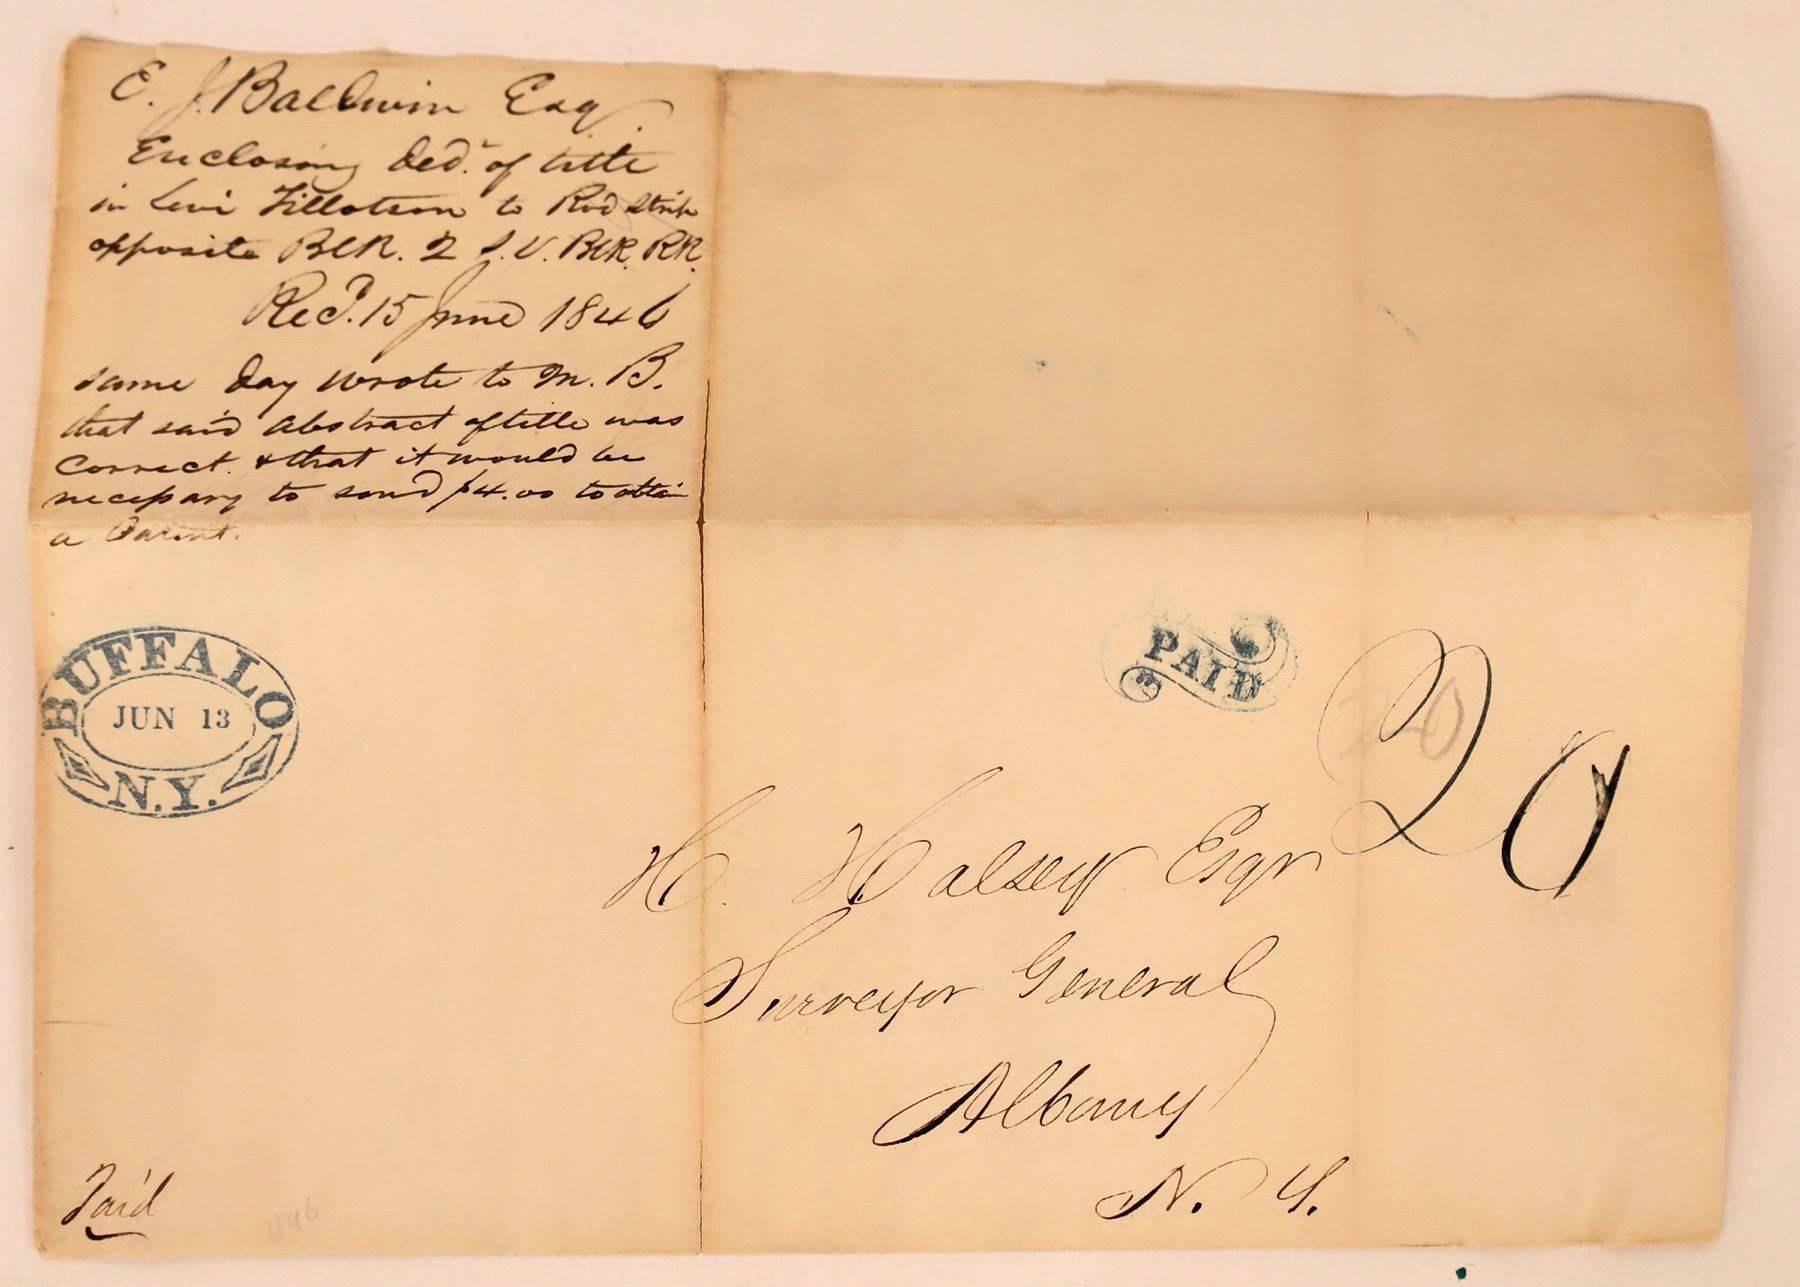 E. J. Baldwin Esq.
Enclosing ded. of title
in Levi Tillotson to Rod Strip
opposite BlR. 2 S. V. BlR. RR.
Recd. 15 June 1846
same day wrote to M. B.
that said Abstract of title was
correct. & that it would be
necessary to send $4.00 to obtain
a Patent.
BUFFALO
JUN 13
N.Y.
PAID
20
20
H. Halsey Esqr
Surveyor General
Albany
N. Y.
Paid
1846